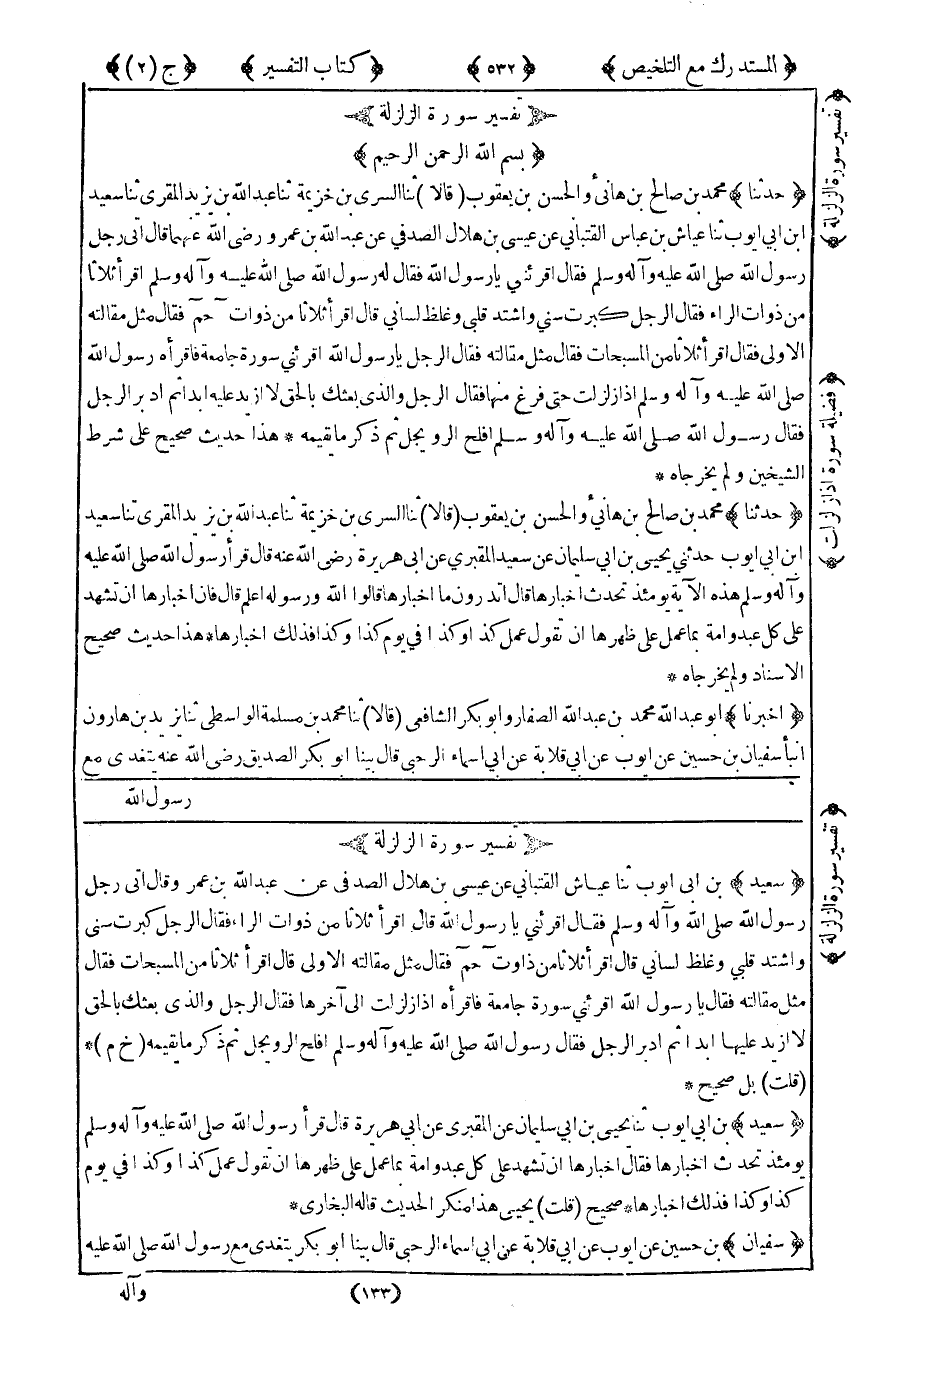 ﴿ المستدرك مع التلخيص ﴾ ﴿ ٥٣٢ ﴾ ﴿ كتاب التفسير ﴾ ﴿ ج (٢) ﴾
تفسير سورة الزلزلة
﴿ بسم الله الرحمن الرحيم ﴾
﴿ حدثنا ﴾ محمد بن صالح بن هانئ والحسن بن يعقوب (قالا) ثنا السرى بن خزيمة ثنا عبد الله بن يزيد المقرى ثنا سعيد
ابن ابي ايوب ثنا عياش بن عباس القتباني عن عيسى بن هلال الصدفي عن عبد الله بن عمرو رضى الله عنهما قال اتى رجل
رسول الله صلى الله عليه وآله وسلم فقال اقرئني يا رسول الله فقال له رسول الله صلى الله عليه وآله وسلم اقرأ ثلاثا
من ذوات الراء فقال الرجل كبرت سني واشتد قلبي وغلظ لساني قال اقرأ ثلاثا من ذوات حم فقال مثل مقالته
الاولى فقال اقرأ ثلاثا من المسبحات فقال مثل مقالته فقال الرجل يا رسول الله اقرئني سورة جامعة فاقرأه رسول الله
صلى الله عليه وآله وسلم اذا زلزلت حتى فرغ منها فقال الرجل والذى بعثك بالحق لا ازيد عليه ابدا ثم ادبر الرجل
فقال رسول الله صلى الله عليه وآله وسلم افلح الرويجل ثم ذكر ما يقيمه * هذا حديث صحيح على شرط
الشيخين ولم يخرجاه *
﴿ حدثنا ﴾ محمد بن صالح بن هانئ والحسن بن يعقوب (قالا) ثنا السرى بن خزيمة ثنا عبد الله بن يزيد المقرى ثنا سعيد
ابن ابي ايوب حدثني يحيى بن ابي سليمان عن سعيد المقبري عن ابى هريرة رضى الله عنه قال قرأ رسول الله صلى الله عليه
وآله وسلم هذه الآية يومئذ تحدث اخبارها قال اتدرون ما اخبارها قالوا الله ورسوله اعلم قال فان اخبارها ان تشهد
على كل عبد وامة بما عمل على ظهرها ان تقول عمل كذا وكذا في يوم كذا وكذا فذلك اخبارها * هذا حديث صحيح
الاسناد ولم يخرجاه *
﴿ اخبرنا ﴾ ابو عبد الله محمد بن عبد الله الصفار وابو بكر الشافعى (قالا) ثنا محمد بن مسلمة الواسطى ثنا يزيد بن هارون
انبأ سفيان بن حسين عن ايوب عن ابي قلابة عن ابي اسماء الرحبى قال بينا ابو بكر الصديق رضى الله عنه يتغدى مع
رسول الله
تفسير سورة الزلزلة
﴿ سعيد ﴾ بن ابى ايوب ثنا عياش القتباني عن عيسى بن هلال الصدفى عن عبد الله بن عمر وقال اتى رجل
رسول الله صلى الله وآله وسلم فقال اقرئني يا رسول الله قال اقرأ ثلاثا من ذوات الراء فقال الرجل كبرت سنى
واشتد قلبي وغلظ لساني قال اقرأ ثلاثا من ذاوت حم فقال مثل مقالته الاولى قال اقرأ ثلاثا من المسبحات فقال
مثل مقالته فقال يا رسول الله اقرئني سورة جامعة فاقرأه اذا زلزلت الى آخرها فقال الرجل والذى بعثك بالحق
لا ازيد عليها ابدا ثم ادبر الرجل فقال رسول الله صلى الله عليه وآله وسلم افلح الرويجل ثم ذكر ما يقيمه (خ م) *
(قلت) بل صحيح *
﴿ سعيد ﴾ بن ابي ايوب ثنا يحيى بن ابي سليمان عن المقبرى عن ابي هريرة قال قرأ رسول الله صلى الله عليه وآله وسلم
يومئذ تحدث اخبارها فقال اخبارها ان تشهد على كل عبد وامة بما عمل على ظهرها ان تقول عمل كذا وكذا في يوم
كذا وكذا فذلك اخبارها * صحيح (قلت) يحيى هذا منكر الحديث قاله البخارى *
﴿ سفيان ﴾ بن حسين عن ايوب عن ابي قلابة عن ابي اسماء الرحبى قال بينا ابو بكر يتغدى مع رسول الله صلى الله عليه
وآله
(١٣٣)
﴿ تفسير سورة الزلزلة ﴾
﴿ فضيلة سورة اذا زلزلت ﴾
﴿ تفسير سورة الزلزلة ﴾